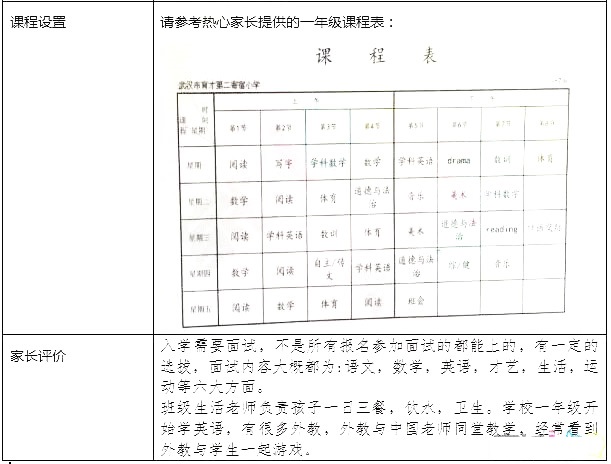 课程设置
请参考热心家长提供的一年级课程表：
课 程 表
武汉市育才第二寄宿小学
时
课 间
程 星期
第1节 第2节 第3节 第4节 第5节 第6节
星期 阅读 写字 学科数学 数学 学科英语 drama 数训 体育
星期二 数学 阅读 体育 道德与法治 音乐 美术 学科数学
星期三 阅读 学科英语 数训 体育 美术 道德与法治 reading
星期四 数学 阅读 自主/传文 学科英语 道德与法治 综/健 音乐
星期五 阅读 数学 体育 阅读 班会
家长评价
入学需要面试，不是所有报名参加面试的都能上的，有一定的
选拔，面试内容大概都为:语文，数学，英语，才艺，生活，运
动等六大方面。
班级生活老师负责孩子一日三餐，饮水，卫生。学校一年级开
始学英语，有很多外教，外教与中国老师同堂教学，经常看到
外教与学生一起游戏。